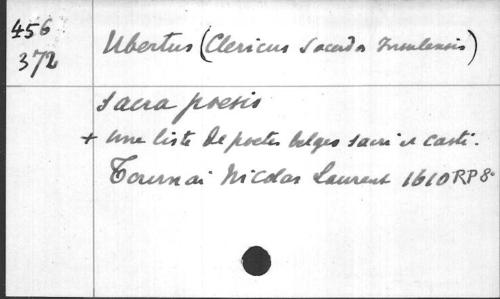 456
372
Ubertus (Clericus Sacerdos Insulensis)
Sacra poesis
+ une liste de poetes belges sacri et casti.
Tournai Nicolas Laurent 1610 RP 8°